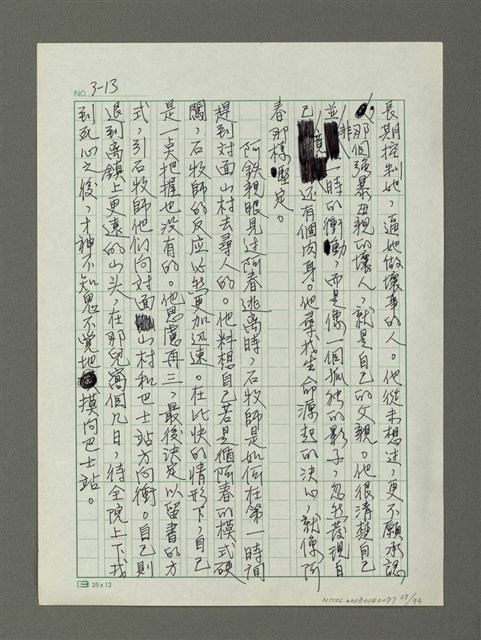 NO. 3-13
長期控制她，逼她做壞事的人。他從未想过，更不願承認
那個強暴母親的壞人，就是自己的父親。他很清楚自己
並非一時的衝動，而是像一個孤独的影子，忽然發現自
己還有個肉身。他尋找生命源起的決心，就像阿
春那樣堅定。
阿鉄親眼見过阿春逃离時，石牧師是如何在第一時間
趕到对面山村去尋人的。他料想自己若是循阿春的模式硬
闖，石牧師的反应必然更加迅速。在此快的情形下，自己
是一点把握也没有的。他思慮再三，最後決定以留書的方
式，引石牧師他们向对面山村和巴士站方向衝。自己則
退到离鎮上更遠的山头，在那兒窩個几日，待全院上下找
到死心之後，才神不知鬼不覺地摸向巴士站。
25x12